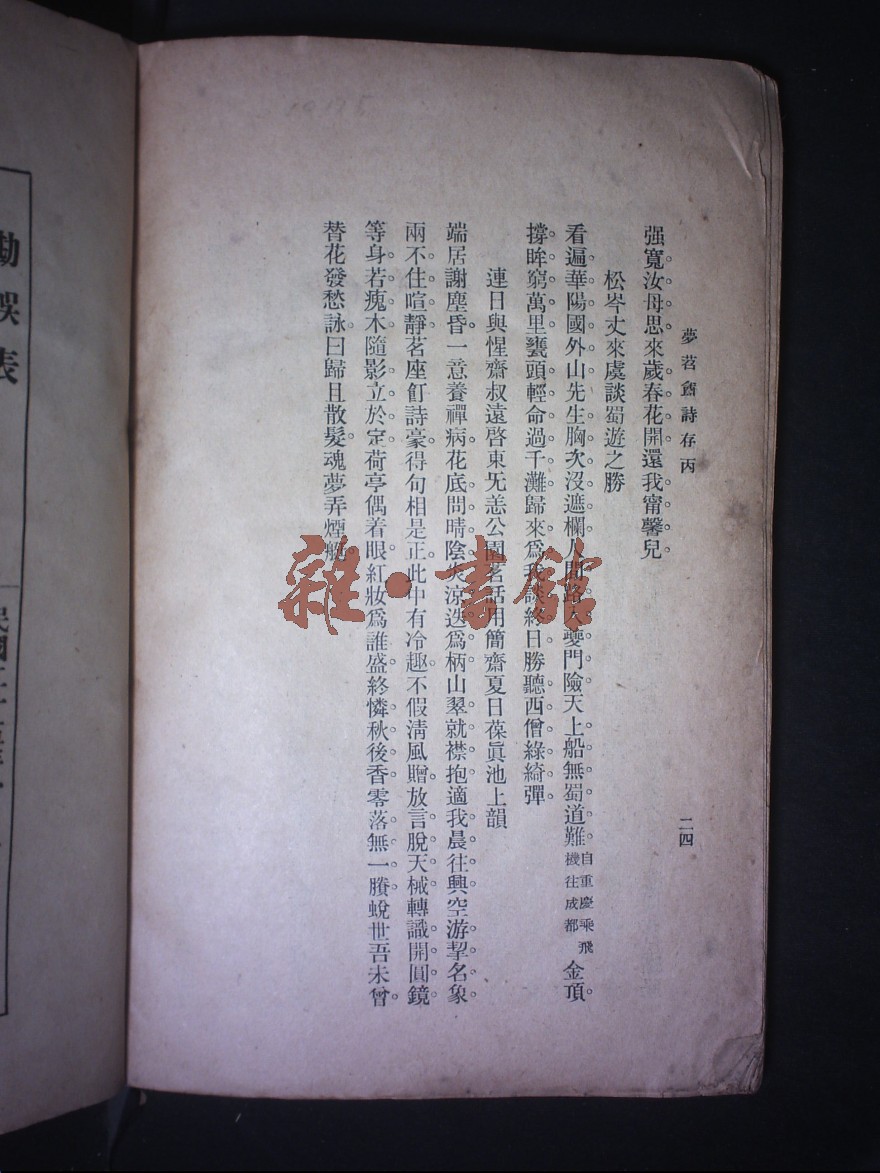 夢苕盦詩存丙
二四
强寬汝母思來歲春花開還我甯馨兒
松岑丈來虞談蜀遊之勝
看遍華陽國外山先生胸次沒遮欄人間路 夔門險天上船無蜀道難自重慶乘飛機往成都金頂
撐眸窮萬里甕頭輕命過千灘歸來爲我談終日勝聽西僧綠綺彈
連日與惺齋叔遠啓東旡恙公園茗話用簡齋夏日葆眞池上韻
端居謝塵昏一意養禪病花底問晴陰炎涼迭爲柄山翠就襟抱適我晨往興空游挈名象
兩不住喧靜茗座飣詩豪得句相是正此中有冷趣不假淸風贈放言脫天械轉識開圓鏡
等身若瘣木隨影立於定荷亭偶着眼紅妝爲誰盛終憐秋後香零落無一賸蛻世吾未曾
替花發愁詠曰歸且散髮魂夢弄煙艇
雜·書館
勘誤表